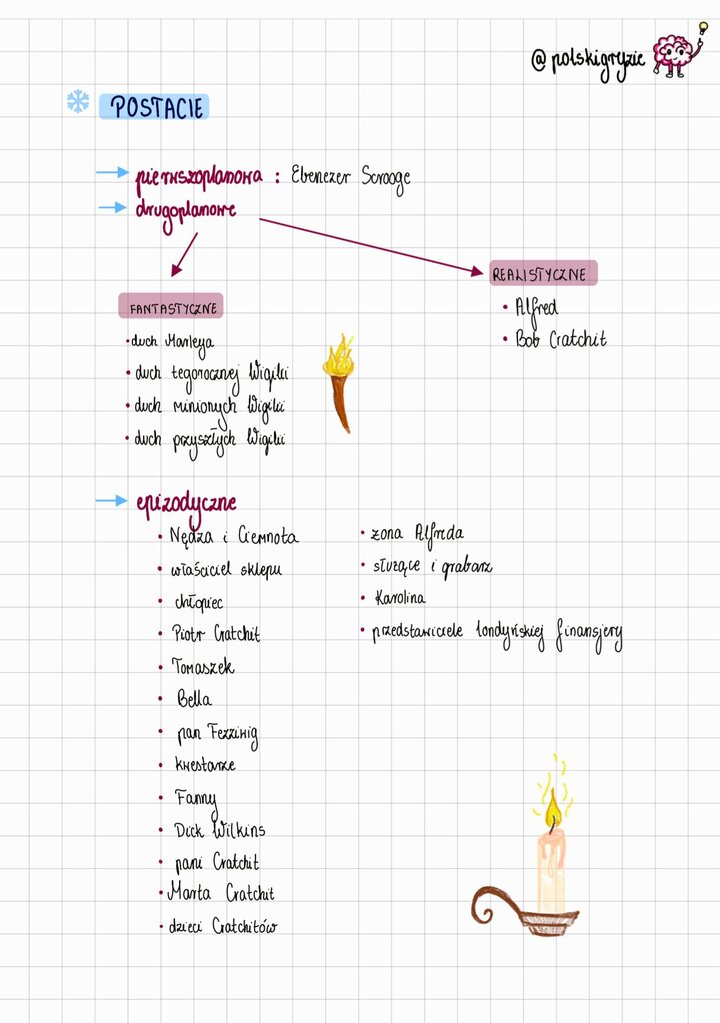 @polskigryzie
POSTACIE
pierwszoplanowa : Ebenezer Scrooge
drugoplanowe
REALISTYCZNE
• Alfred
• Bob Cratchit
FANTASTYCZNE
• duch Marleya
• duch tegorocznej Wigilii
• duch minionych Wigilii
• duch przyszłych Wigilii
epizodyczne
• Nędza i Ciemnota
• właściciel sklepu
• chłopiec
• Piotr Cratchit
• Tomaszek
• Bella
• pan Fezziwig
• kwestarze
• Fanny
• Dick Wilkins
• pani Cratchit
• Marta Cratchit
• dzieci Cratchitów
• żona Alfreda
• służące i grabarz
• Karolina
• przedstawiciele londyńskiej finansjery